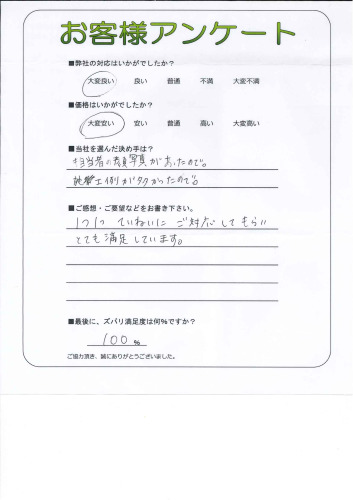 お客様アンケート
■弊社の対応はいかがでしたか?
大変良い 良い 普通 不満 大変不満
■価格はいかがでしたか?
大変安い 安い 普通 高い 大変高い
■当社を選んだ決め手は?
担当者の顔写真があったので。
施工例がタクかったので。
■ご感想・ご要望などをお書き下さい。
1つ1つ ていねいに ご対応してもらい
とても満足しています。
■最後に、ズバリ満足度は何%ですか?
100 %
ご協力頂き、誠にありがとうございました。